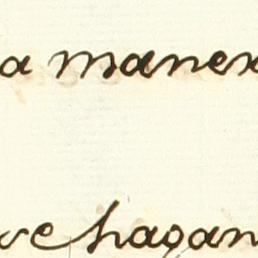 a maner
ve hagan